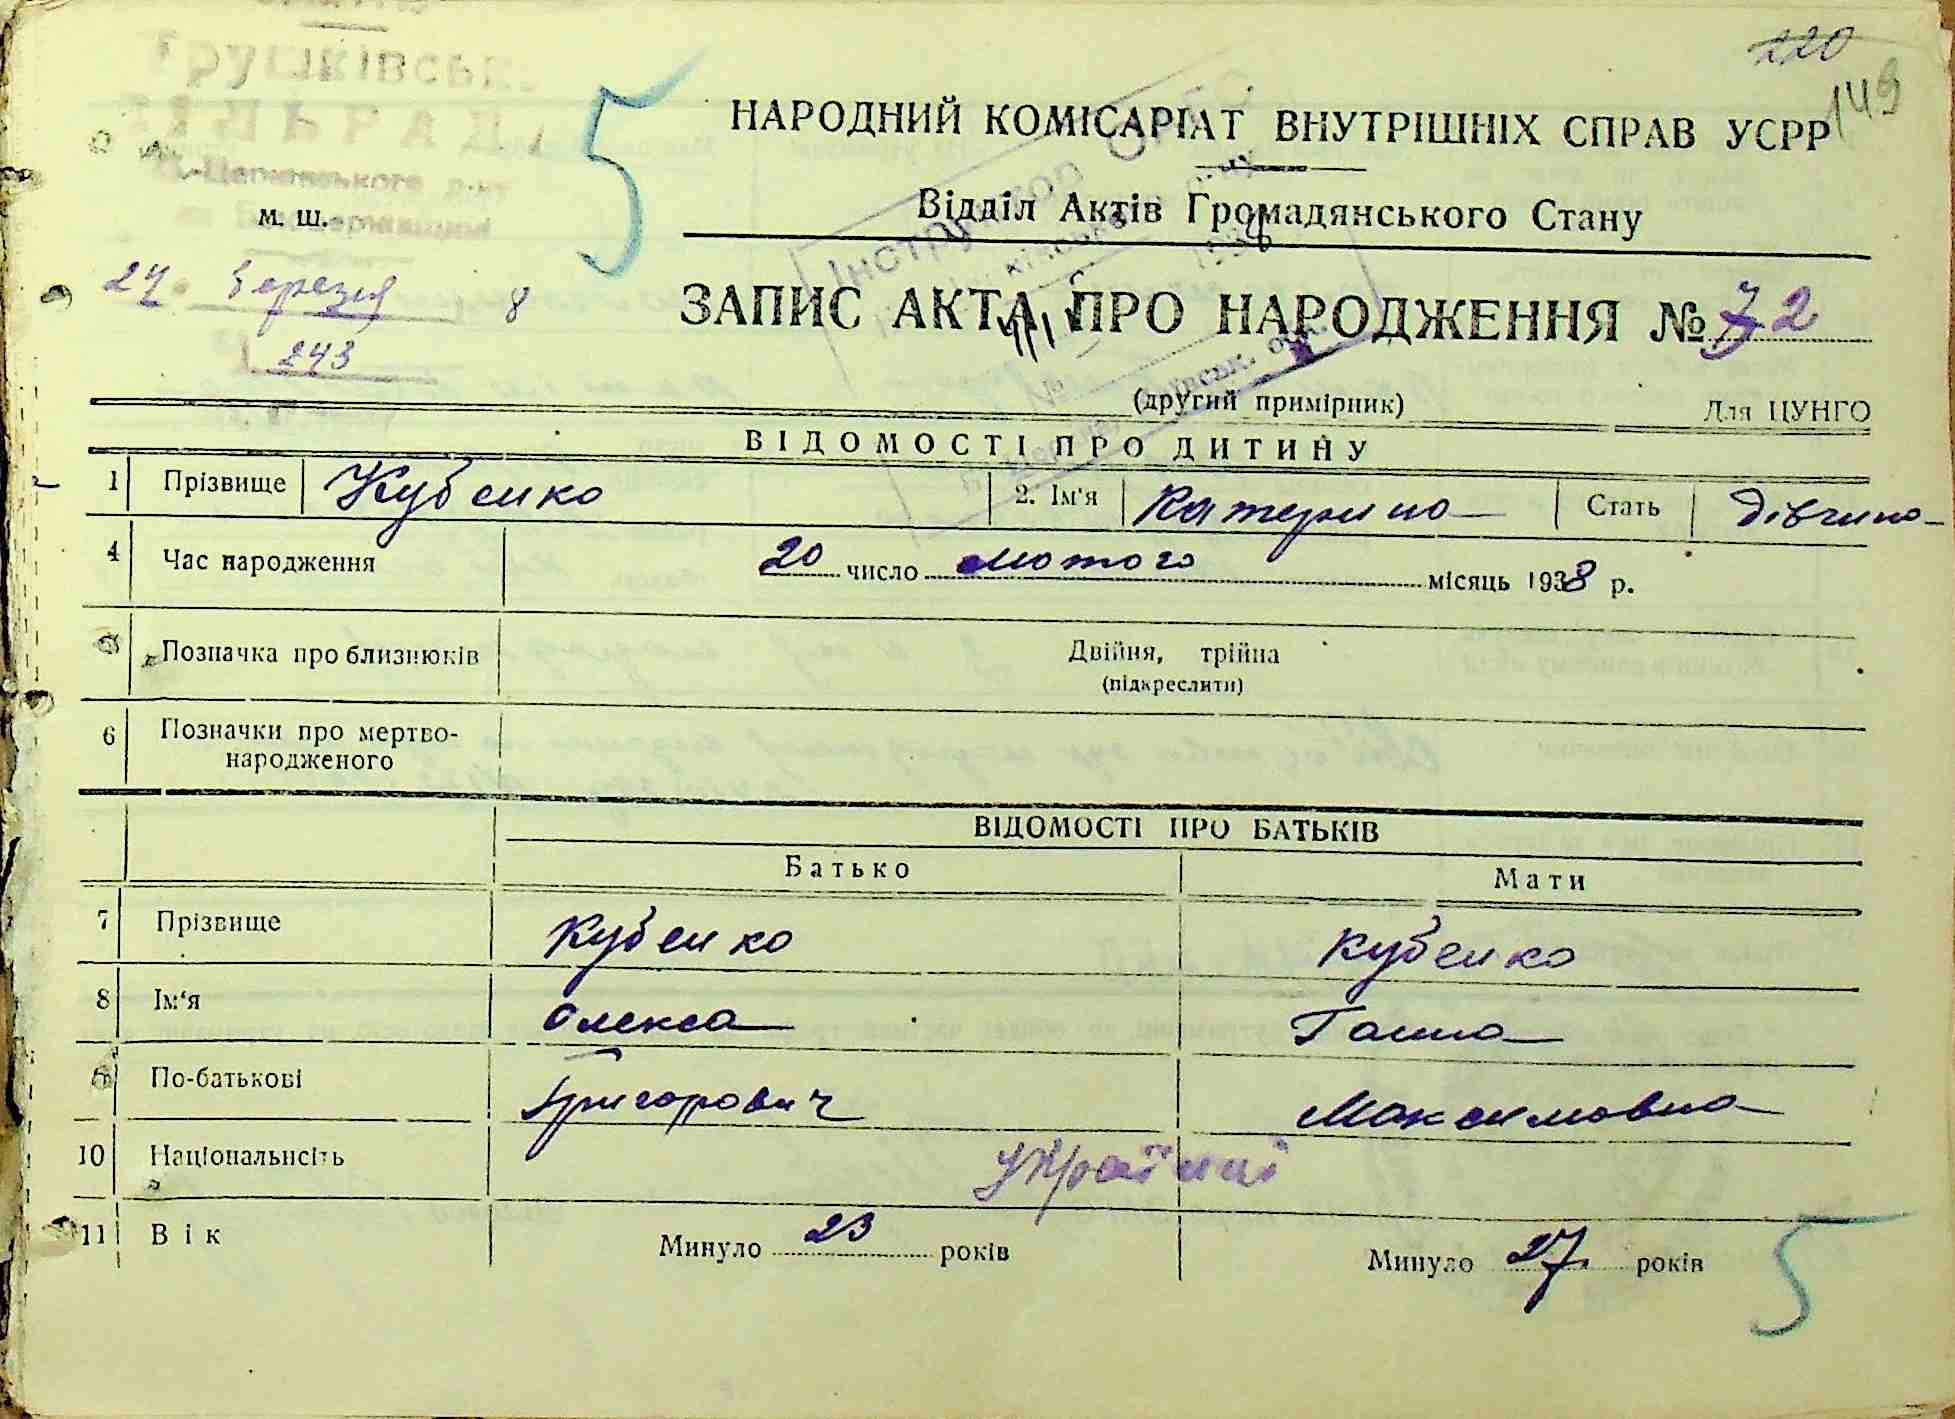 220
149
Грушківськ
СІЛЬРАДА
5
НАРОДНИЙ КОМІСАРІАТ ВНУТРІШНІХ СПРАВ УСРР
м. ш.
Відділ Актів Громадянського Стану
Інструктор
27 березня 8
ЗАПИС АКТА ПРО НАРОДЖЕННЯ № 72
243
(другий примірник) Для ЦУНГО
ВІДОМОСТІ ПРО ДИТИНУ
1 Прізвище Кубенко 2. Ім'я Катерина Стать дівчина
4 Час народження 20 число лютого місяць 1938 р.
Позначка про близнюків Двійня, трійня
(підкреслити)
6 Позначки про мертво-
народженого
ВІДОМОСТІ ПРО БАТЬКІВ
Батько Мати
7 Прізвище Кубенко Кубенко
8 Ім'я Олекса Ганна
9 По-батькові Григорович Максимовна
10 Національність українці
11 Вік Минуло 23 років Минуло 27 років
5